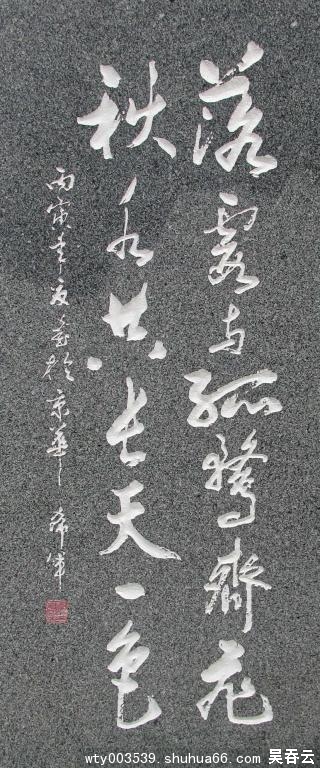 落霞与孤鹜齊飛
秋水共長天一色
丙寅年夏於京華
wty003539.shuhua66.com 吴吞云